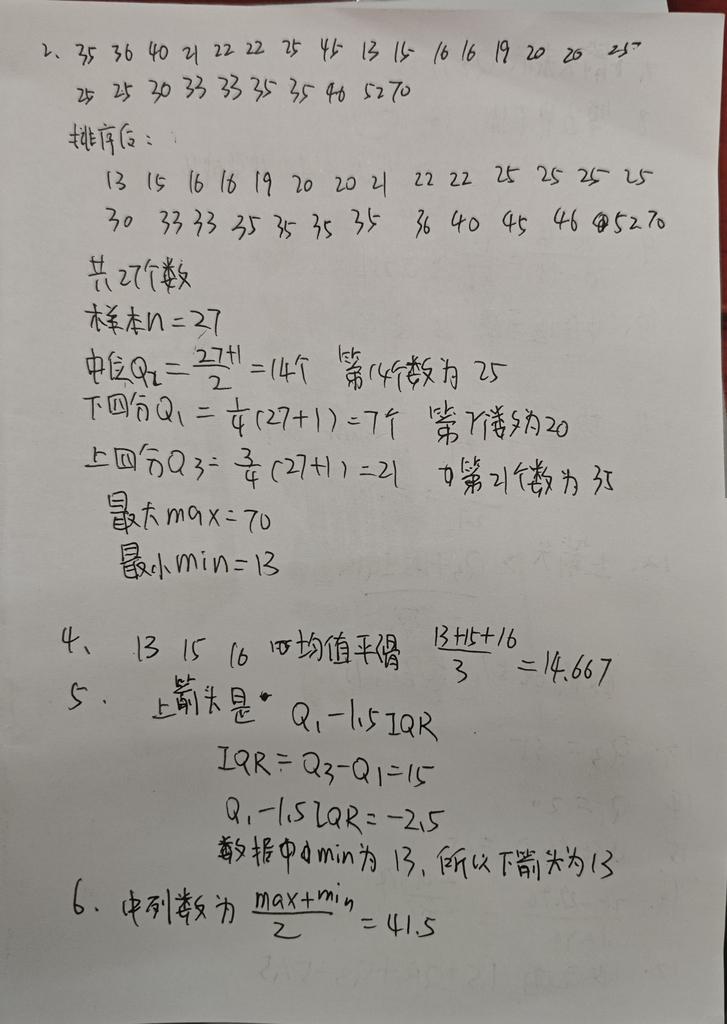 2、35 36 40 21 22 22 25 45 13 15 16 16 19 20 20 25
25 25 30 33 33 35 35 46 52 70
排序后：
13 15 16 16 19 20 20 21 22 22 25 25 25 25
30 33 33 35 35 35 35 36 40 45 46 52 70
共27个数
样本n=27
中位Q2=(27+1)/2=14个 第14个数为25
下四分Q1=1/4(27+1)=7个 第7个数为20
上四分Q3=3/4(27+1)=21 第21个数为35
最大max=70
最小min=13
4、 13 15 16 均值平滑 (13+15+16)/3=14.667
5. 上箭头是 Q1-1.5IQR
IQR=Q3-Q1=15
Q1-1.5IQR=-2.5
数据中min为13,所以下箭头为13
6. 中列数为 (max+min)/2=41.5